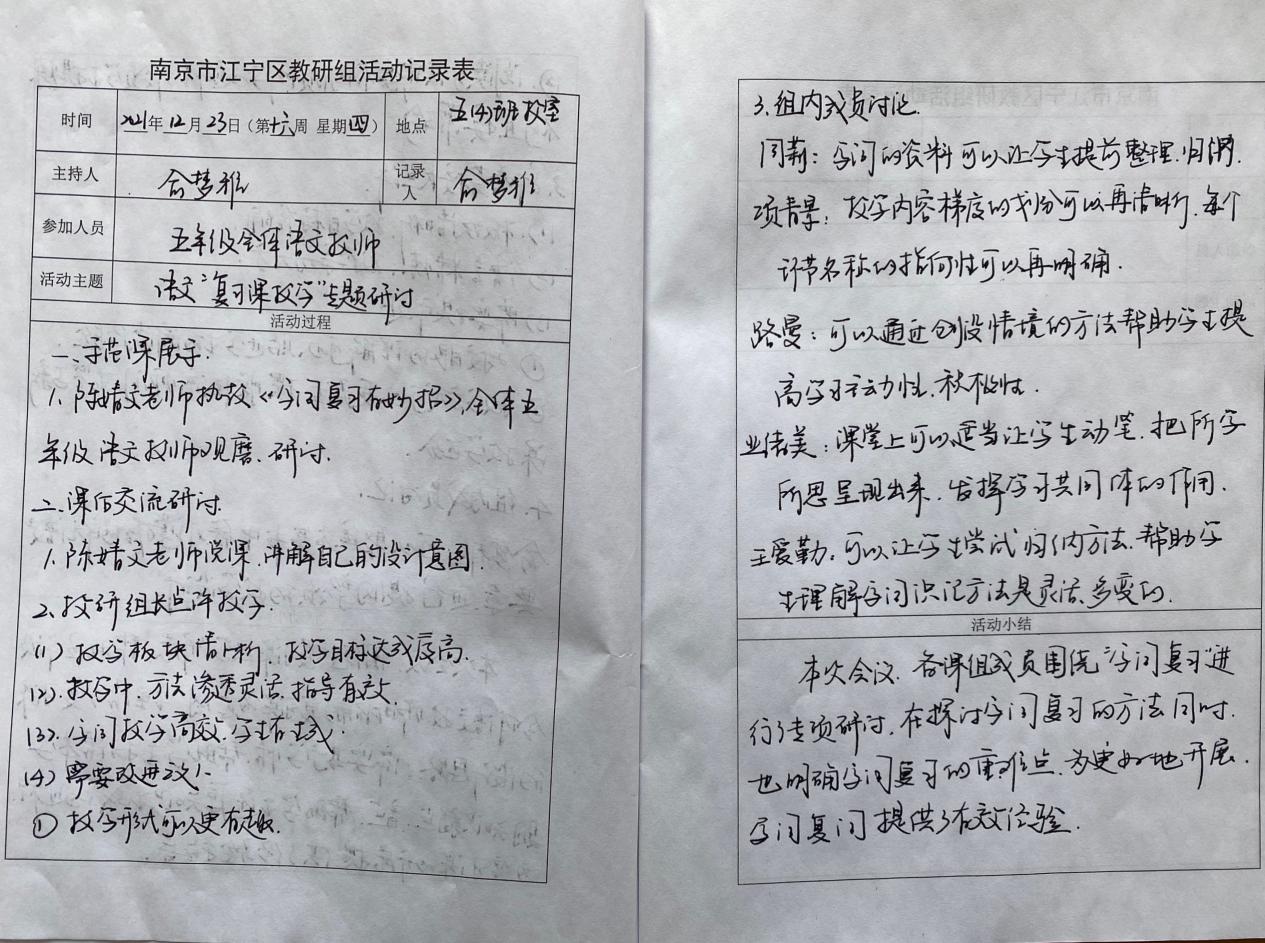 南京市江宁区教研组活动记录表
时间 2021年12月23日（第十六周 星期四） 地点 五(4)班教室
主持人 俞梦雅 记录人 俞梦雅
参加人员 五年级全体语文教师
活动主题 语文“复习课教学”专题研讨
活动过程
一、示范课展示.
1. 陈婧文老师执教《字词复习有妙招》,全体五
年级语文教师观磨、研讨.
二.课后交流研讨.
1. 陈婧文老师说课,讲解自己的设计意图.
2、教研组长点评教学.
(1) 教学板块清晰，教学目标达成度高.
(2). 教学中,方法渗透灵活,指导有效.
(3). 字词教学高效,学生有生成.
(4) 需要改进之处:
① 教学形式可以更有趣.
3.组内成员讨论.
闫莉: 字词的资料可以让学生提前整理.归纳.
项青景: 教学内容梯度的划分可以再清晰,每个
环节名称的指向性可以再明确.
路曼: 可以通过创设情境的方法帮助学生提
高学习主动性、积极性.
业倩美: 课堂上可以适当让学生动笔,把所学
所思呈现出来,发挥学习共同体的作用.
王爱勤. 可以让学生尝试归纳方法,帮助学
生理解字词识记方法是灵活、多变的.
活动小结
本次会议,备课组成员围绕“字词复习”进
行了专项研讨,在探讨字词复习的方法同时.
也明确字词复习的重难点,为更好地开展.
字词复习提供了有效经验.